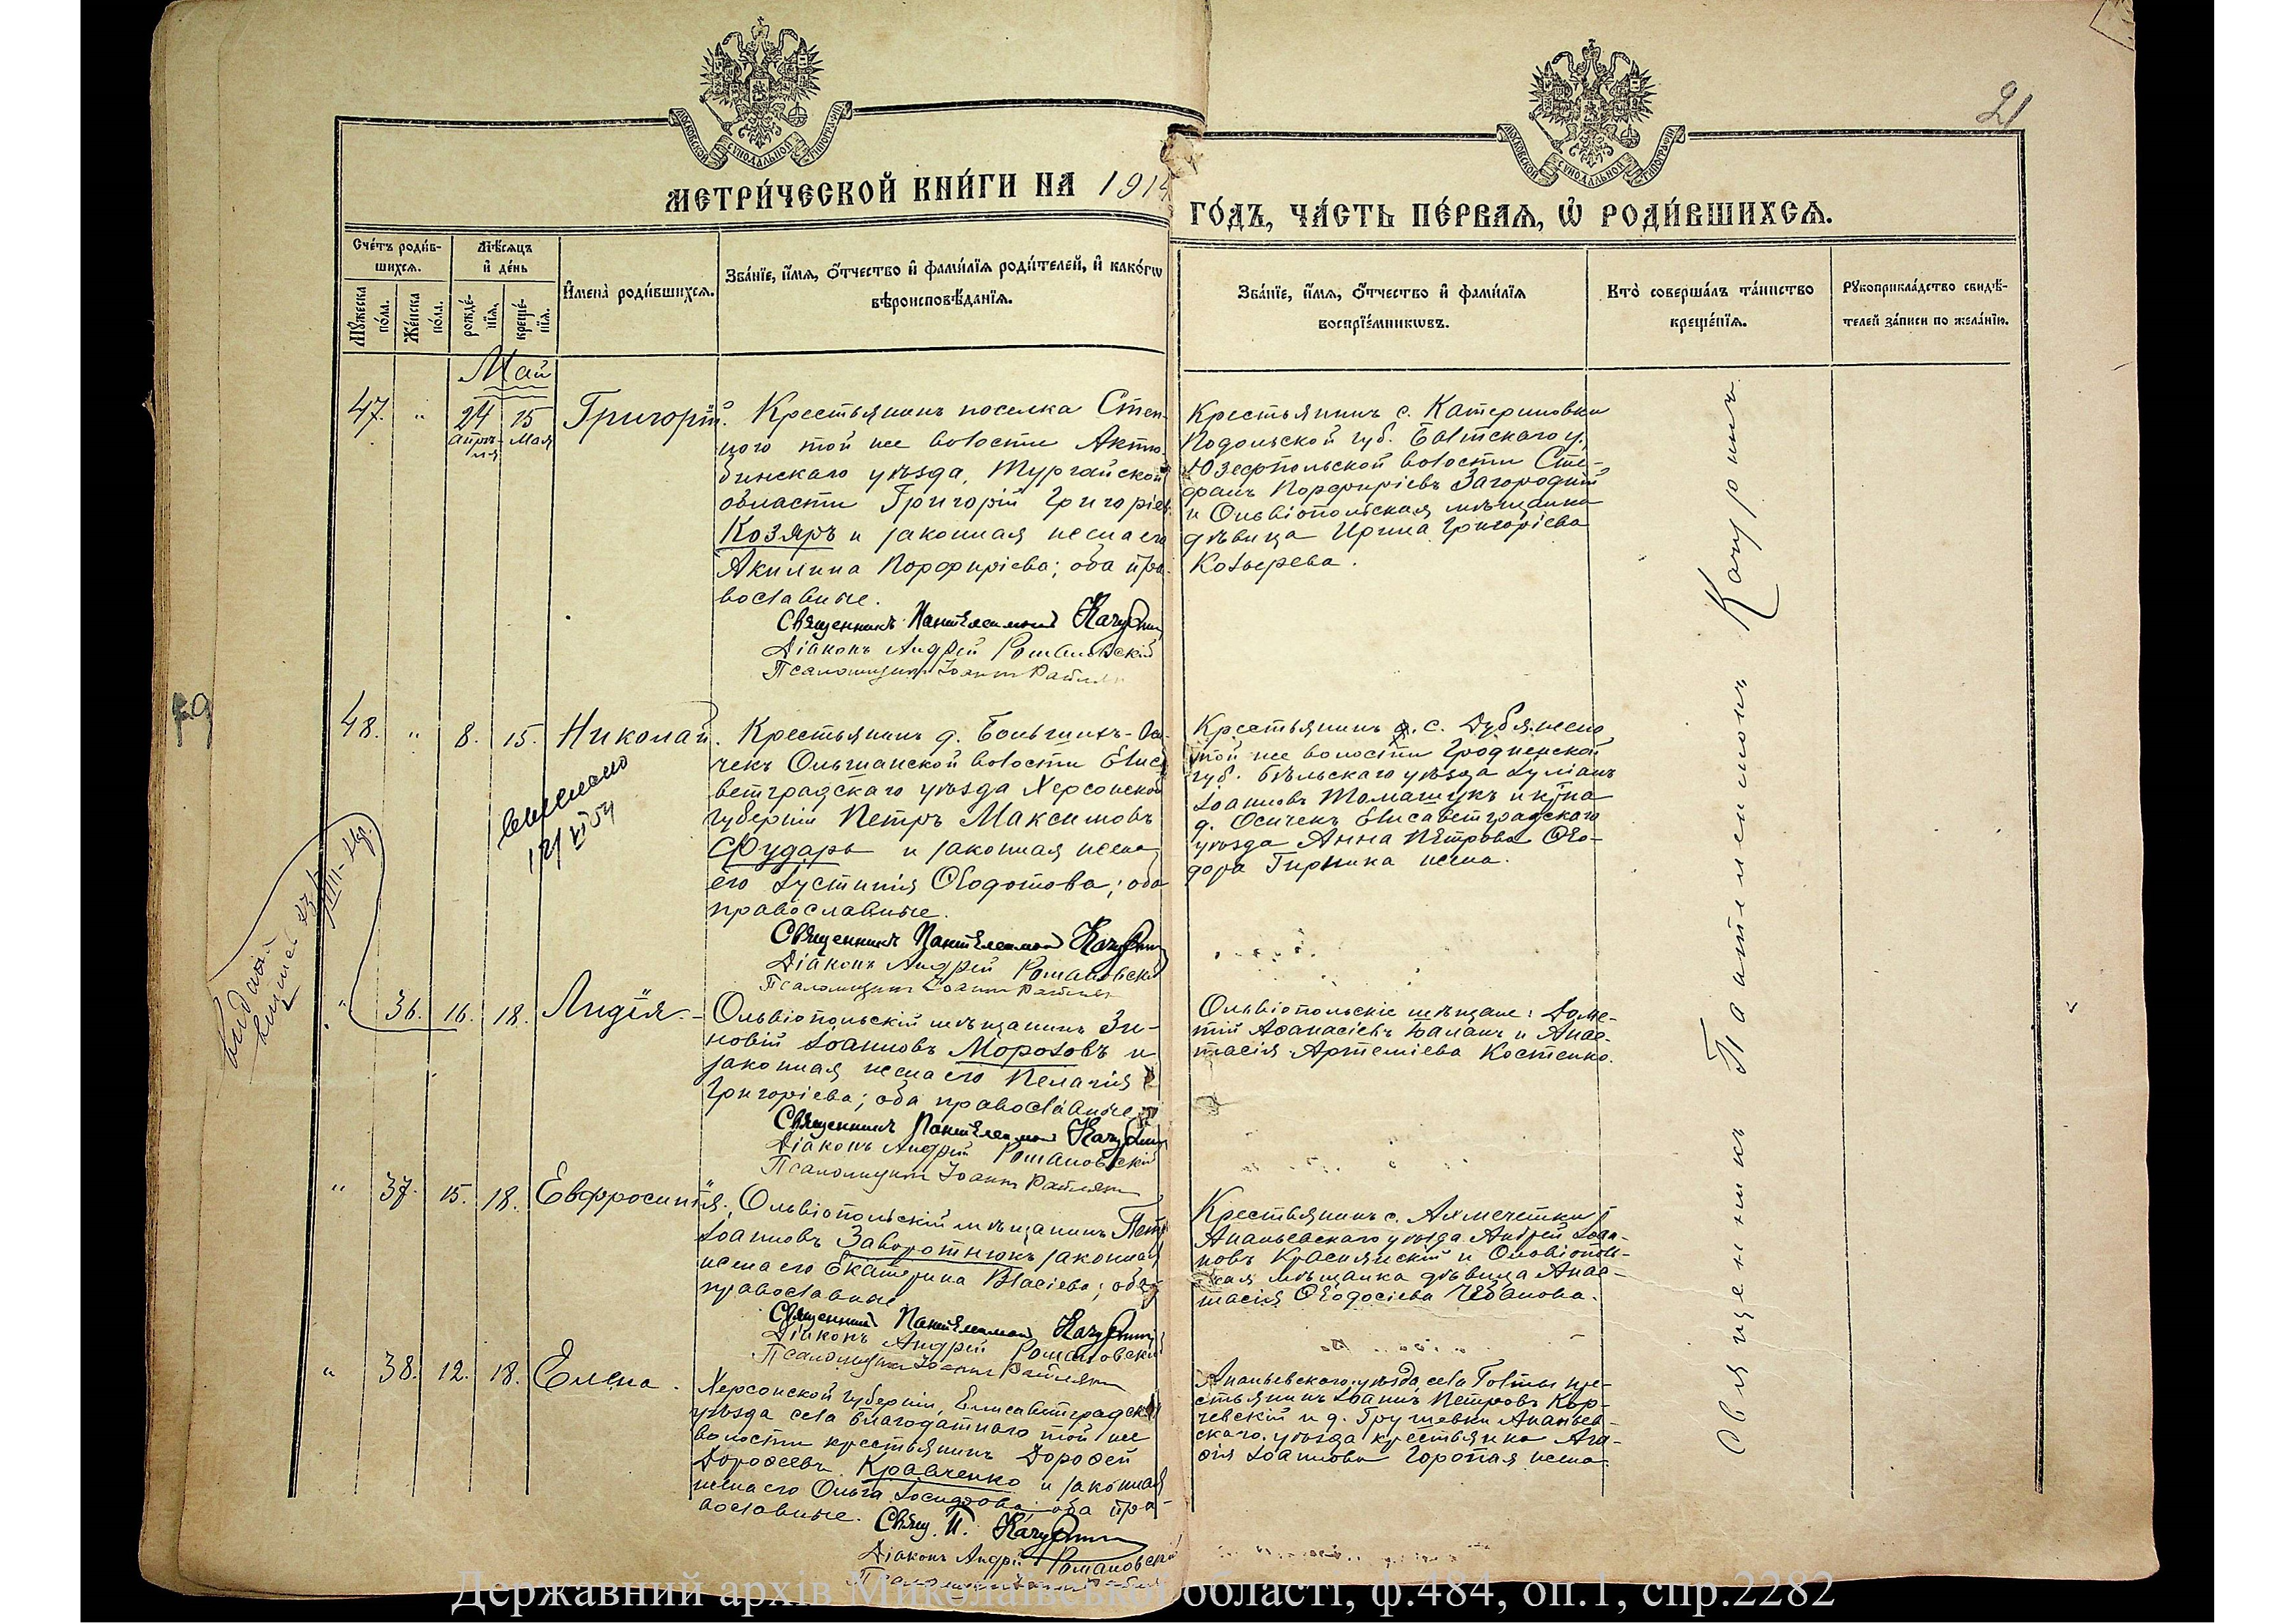 21
МОСКОВСКОЙ СѴНОДАЛЬНОЙ ТИПОГРАФІИ
МОСКОВСКОЙ СѴНОДАЛЬНОЙ ТИПОГРАФІИ
МЕТРИ́ЧЕСКОЙ КНИ́ГИ НА 1914
ГО́ДЪ, ЧА́СТЬ ПЕ́РВАѦ, Ѡ҆ РОДИ́ВШИХСѦ.
Сче́тъ роди́в-
шихсѧ.
Мꙋ́жеска
по́ла.
Же́нска
по́ла.
Мѣ́сѧцъ
и҆ де́нь
рожде́-
нїѧ.
креще́-
нїѧ.
И҆мена̀ роди́вшихсѧ.
Зва́нїе, и҆́мѧ, ѻ҆́тчество и҆ фами́лїѧ роди́телей, и҆ како́гѡ
вѣроисповѣ́данїѧ.
Зва́нїе, и҆́мѧ, ѻ҆́тчество и҆ фами́лїѧ
воспрїе́мникѡвъ.
Кто̀ соверша́лъ та́инство
креще́нїѧ.
Рꙋкоприкла́дство свидѣ́-
телей за́писи по жела́нїю.
Май
47. " 24 апрѣ-ля 15 Мая Григорій.
Крестьянинъ поселка Степ-
ного той же волости Актю-
бинскаго уѣзда, Тургайской
области Григорій Григоріев.
Козяръ и законная жена его
Акилина Порфиріева; оба пра-
вославные.
Священникъ Пантелеимонъ Качуринъ
Діаконъ Андрей Романовскій
Псаломщикъ Іоаннъ
Крестьянинъ с. Катериновки
Подольской губ. Балтскаго у.
Юзефпольской волости Сте-
фанъ Порфиріевъ Загородній
и Ольвіопольская мѣщанка
дѣвица Ирина Григоріева
Козырева.
48. " 8. 15. Николай.
Крестьянинъ д. Большихъ-
чекъ Ольшанской волости Елиса
ветградскаго уѣзда Херсонской
губерніи Петръ Максимовъ
Фударь и законная жена
его Іустинія Ѳеодотова; оба
православные.
Священникъ Пантелеимонъ Качуринъ
Діаконъ Андрей Романовскій
Псаломщикъ Іоаннъ
Крестьянинъ с. Дубяжено
той же волости Гродненской
губ. Бѣльскаго уѣзда Іуліанъ
Іоанновъ Томашукъ и кр-на
д. Осичекъ Елисаветградскаго
уѣзда Анна Петрова Ѳео-
дора Гирника жена.
" 36. 16. 18. Лидія.
Ольвіопольскій мѣщанинъ Зи-
новій Іоанновъ Морозовъ и
законная жена его Пелагія
Григоріева; оба православные.
Священникъ Пантелеимонъ Качуринъ
Діаконъ Андрей Романовскій
Псаломщикъ Іоаннъ
Ольвіопольскіе мѣщане: Доме-
тій Аѳанасіевъ Баланъ и Анас-
тасія Артеміева Костенко.
" 37. 15. 18. Евфросинія.
Ольвіопольскій мѣщанинъ Петръ
Іоанновъ Заворотнюкъ законная
жена его Екатерина Власіева; оба
православные
Священникъ Пантелеимонъ Качуринъ
Діаконъ Андрей Романовскій
Псаломщикъ Іоаннъ
Крестьянинъ с. Ахмечетки
Ананьевскаго уѣзда Андрей Іоан-
новъ Краснянскій и Ольвіополь-
ская мѣщанка дѣвица Анас-
тасія Ѳеодосіева Чебанова.
" 38. 12. 18. Елена.
Херсонской губерніи, Елисаветградск
уѣзда села Благодатнаго той же
волости крестьянинъ Дороѳей
Дороѳеевъ Кравченко и законная
жена его Ольга Іосифова; оба пра-
вославные.
Свящ. П. Качуринъ
Діаконъ Андрей Романовскій
Ананьевскаго уѣзда, села Голмы кре-
стьянинъ Іоаннъ Петровъ Кор-
чевскій и д. Грушевки Ананьев-
скаго уѣзда крестьянка Ага-
ѳія Іоаннова Горопая жена
Священникъ Пантелеимонъ Качуринъ
Державний архів Миколаївської області, ф.484, оп.1, спр.2282